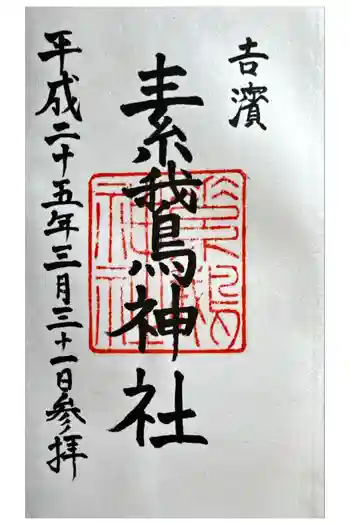 吉濱
素我鳥神社
平成二十五年三月三十一日参拝